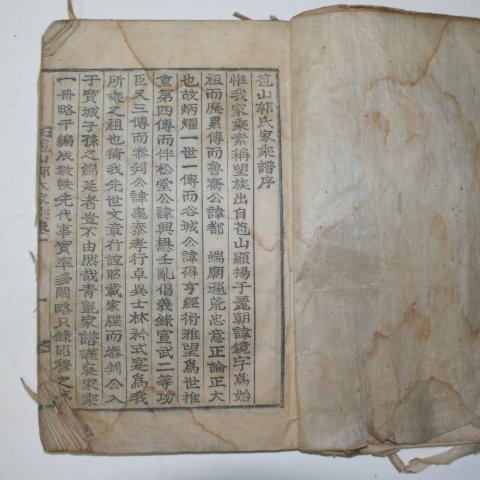 苞山郭氏家乘譜序
惟我家乘素稱望族出自苞山顯揚于麗朝諱鏡字爲始
祖而歷累傳而魯齋公諱都 端廟遜荒忠意正論正大
也故炳耀一世一傳而谷城公諱得亨經術雅望爲世推
重第四傳而伴松堂公諱興懋壬亂倡義錄宣武二等功
臣又三傳而參判公諱龜泰孝行卓異士林矜式寔爲我
所乘之祖也猗我先世文章行誼昭載家牒而參判公入
于寶城子孫之綿延者豈不由然哉靑氈家譜謹裒家乘
一冊略干編成數帙先代事實率多闕略只錄昭穆之
苞山郭氏家乘卷一